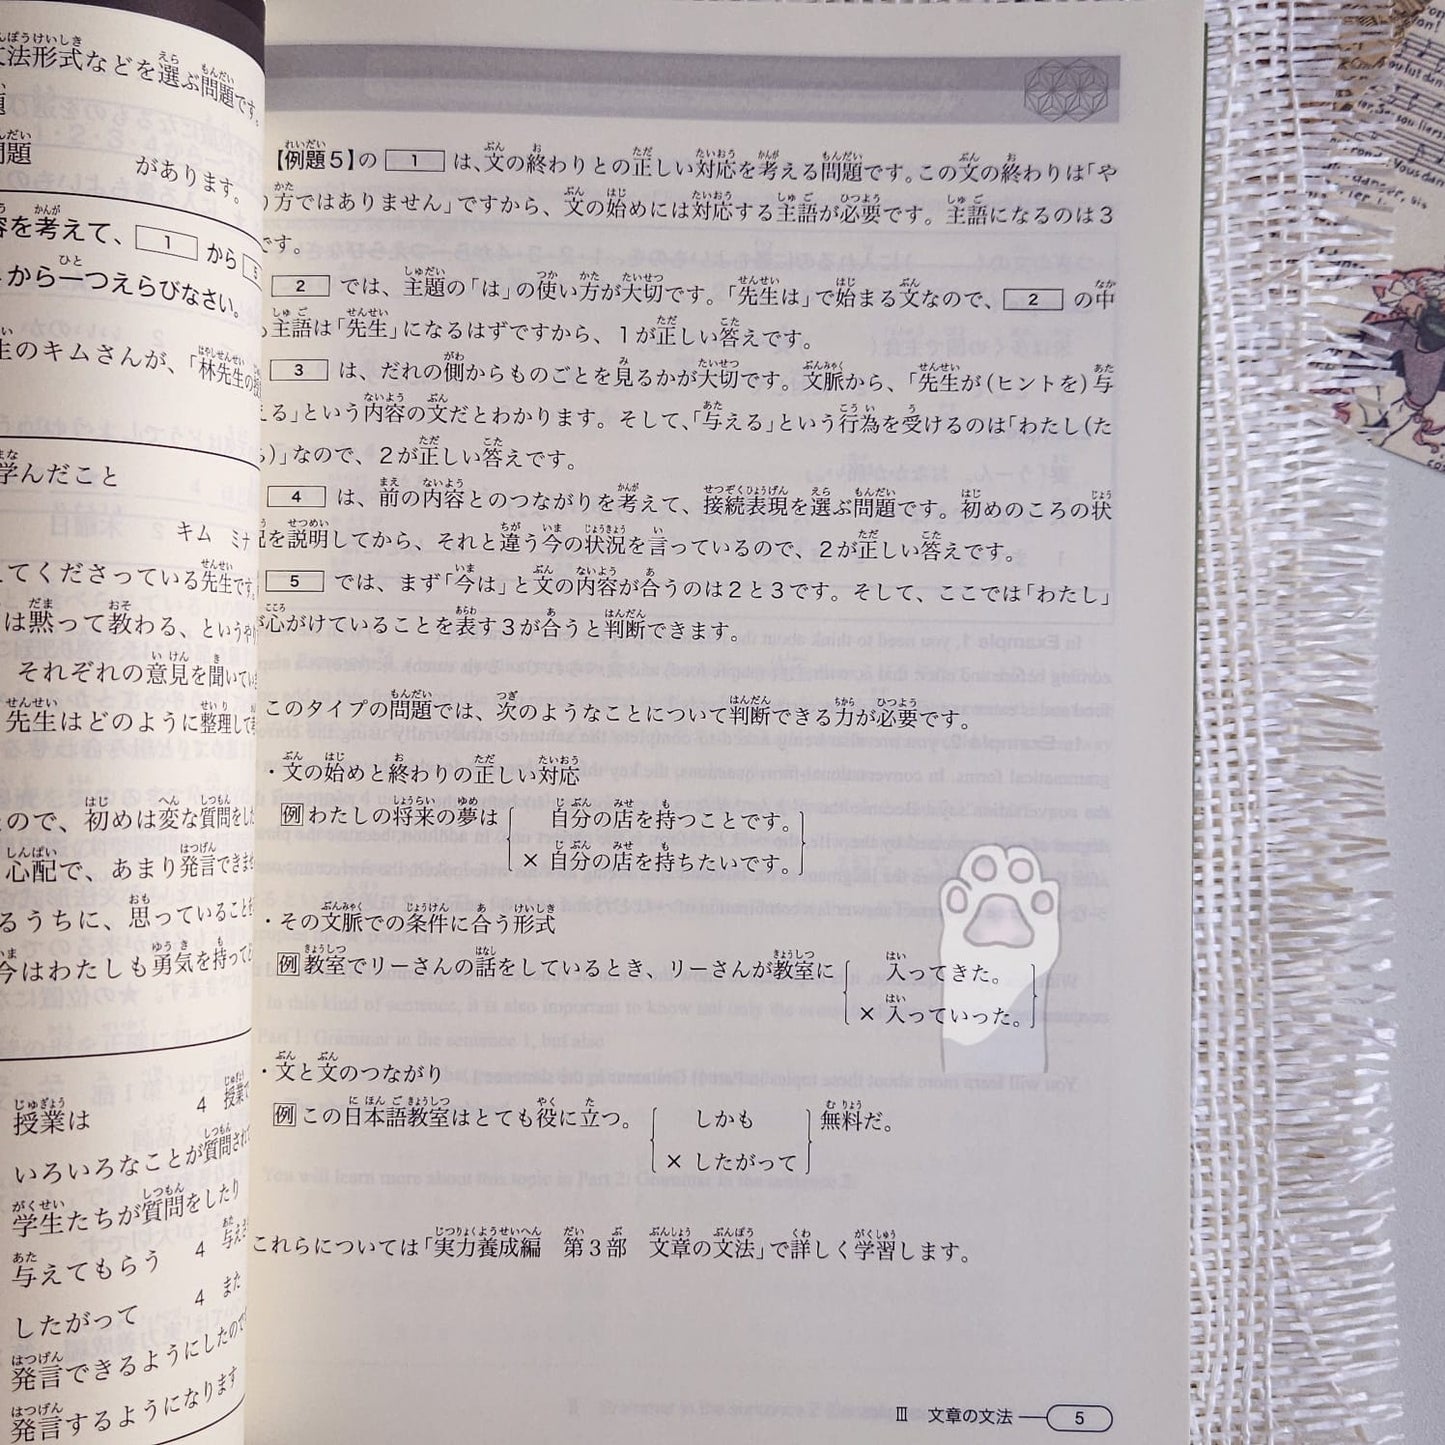 法形式などを選ぶ問題です。
題
問題
があります。
容を考えて、 1 から 5
から一つえらびなさい。
生のキムさんが、「林先生の
学んだこと
キム ミナ
てくださっている先生です。
は黙って教わる、というや
それぞれの意見を聞いて
先生はどのように整理して
ので、初めは変な質問をした
心配で、あまり発言できま
るうちに、思っていることを
今はわたしも勇気を持って
授業は
4 授業で
いろいろなことが質問されて
学生たちが質問をしたり
与えてもらう
4 与え
したがって
4 また
発言できるようにしたので
発言するようになります
【例題5】の 1 は、文の終わりとの正しい対応を考える問題です。この文の終わりは「や
り方ではありません」ですから、文の始めには対応する主語が必要です。主語になるのは3
です。
2 では、主題の「は」の使い方が大切です。「先生は」で始まる文なので、 2 の中
も主語は「先生」になるはずですから、1が正しい答えです。
3 は、だれの側からものごとを見るかが大切です。文脈から、「先生が(ヒントを)与
える」という内容の文だとわかります。そして、「与える」という行為を受けるのは「わたし(た
ち)」なので、2が正しい答えです。
4 は、前の内容とのつながりを考えて、接続表現を選ぶ問題です。初めのころの状
況を説明してから、それと違う今の状況を言っているので、2が正しい答えです。
5 では、まず「今は」と文の内容が合うのは2と3です。そして、ここでは「わたし」
が心がけていることを表す3が合うと判断できます。
このタイプの問題では、次のようなことについて判断できる力が必要です。
・文の始めと終わりの正しい対応
例 わたしの将来の夢は 自分の店を持つことです。
× 自分の店を持ちたいです。
・その文脈での条件に合う形式
例 教室でリーさんの話をしているとき、リーさんが教室に 入ってきた。
× 入っていった。
・文と文のつながり
例 この日本語教室はとても役に立つ。 しかも 無料だ。
× したがって
これらについては「実力養成編 第3部 文章の文法」で詳しく学習します。
Ⅲ 文章の文法 5